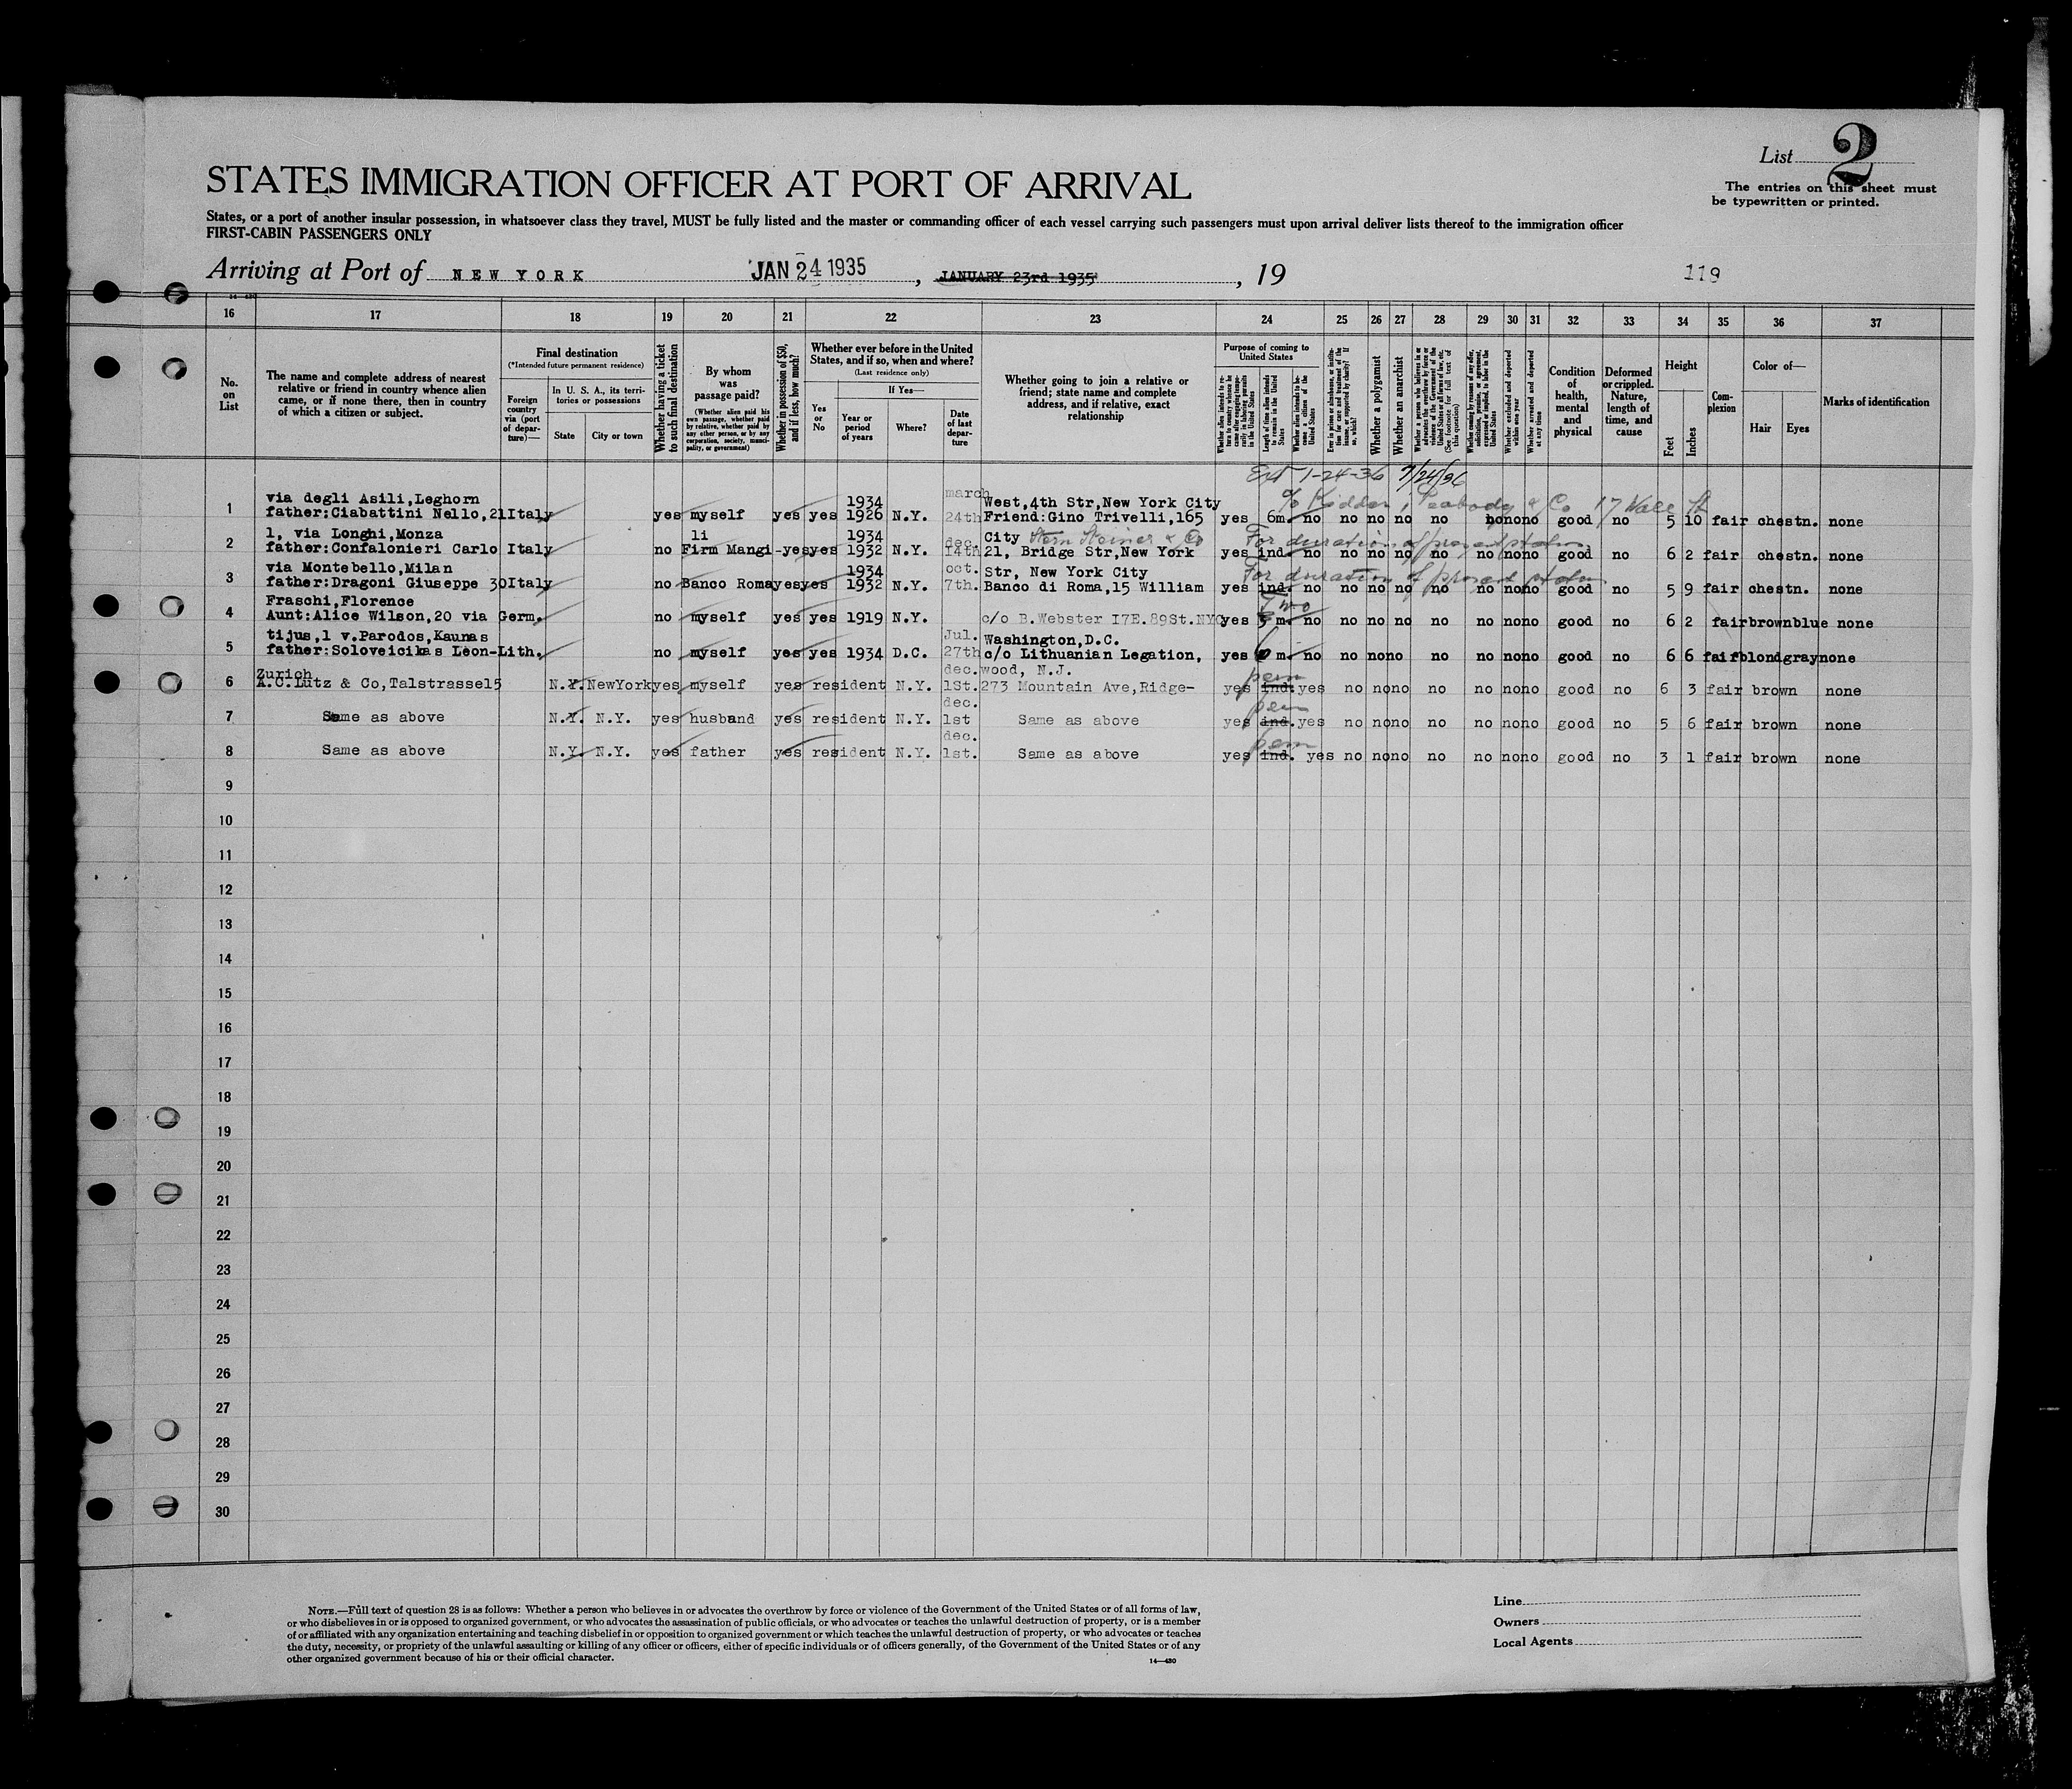 List 2
STATES IMMIGRATION OFFICER AT PORT OF ARRIVAL
The entries on this sheet must
be typewritten or printed.
States, or a port of another insular possession, in whatsoever class they travel, MUST be fully listed and the master or commanding officer of each vessel carrying such passengers must upon arrival deliver lists thereof to the immigration officer
FIRST-CABIN PASSENGERS ONLY
Arriving at Port of NEW YORK JAN 24 1935 , JANUARY 23rd 1935 , 19 119
16 17 18 19 20 21 22 23 24 25 26 27 28 29 30 31 32 33 34 35 36 37
No. on List
The name and complete address of nearest relative or friend in country whence alien came, or if none there, then in country of which a citizen or subject.
Final destination
(*Intended future permanent residence)
Foreign country via (port of departure)—
In U. S. A., its territories or possessions
State City or town
Whether having a ticket to such final destination
By whom was passage paid?
(Whether alien paid his own passage, whether paid by relative, whether paid by any other person, or by any corporation, society, municipality, or government)
Whether in possession of $50, and if less, how much?
Whether ever before in the United States, and if so, when and where?
(Last residence only)
Yes or No
If Yes—
Year or period of years
Where?
Date of last departure
Whether going to join a relative or friend; state name and complete address, and if relative, exact relationship
Purpose of coming to United States
Length of time alien intends to remain in the United States
Whether alien intends to become a citizen of the United States
Whether a polygamist
Whether an anarchist
(See footnote for full text of this question)
Whether excluded and deported within one year
Whether arrested and deported at any time
Condition of health, mental and physical
Deformed or crippled. Nature, length of time, and cause
Height
Feet Inches
Complexion
Color of—
Hair Eyes
Marks of identification
Ext 1-24-36 7/24/36
via degli Asili,Leghorn 1934 march West,4th Str,New York City % Kidder, Peabody & Co 17 Wall St
1 father:Ciabattini Nello,21 Italy yes myself yes yes 1926 N.Y. 24th Friend:Gino Trivelli,165 yes 6m. no no no no no no no no good no 5 10 fair chestn. none
1, via Longhi,Monza li 1934 dec. City Stern Steiner & Co For duration of present status
2 father:Confalonieri Carlo Italy no Firm Mangi- yes yes 1932 N.Y. 14th 21, Bridge Str,New York yes ind. no no no no no no no no good no 6 2 fair chestn. none
via Montebello,Milan 1934 oct. Str, New York City For duration of present status
3 father:Dragoni Giuseppe 30 Italy no Banco Roma yes yes 1932 N.Y. 7th. Banco di Roma,15 William yes ind. no no no no no no no no good no 5 9 fair chestn. none
Fraschi,Florence Two
4 Aunt:Alice Wilson,20 via Germ. no myself yes yes 1919 N.Y. c/o B.Webster 17E.89St.NYC yes m. no no no no no no no no good no 6 2 fair brown blue none
tijus,1 v.Parodos,Kaunas Jul. Washington,D.C.
5 father:Soloveicikas Leon- Lith. no myself yes yes 1934 D.C. 27th c/o Lithuanian Legation, yes 6 m. no no no no no no no no good no 6 6 fair blond gray none
Zurich dec. wood, N.J. perm
6 A.C.Lutz & Co,Talstrasse15 N.Y. NewYork yes myself yes resident N.Y. 1St. 273 Mountain Ave,Ridge- yes ind. yes no no no no no no no good no 6 3 fair brown none
dec. perm
7 Same as above N.Y. N.Y. yes husband yes resident N.Y. 1st Same as above yes ind. yes no no no no no no no good no 5 6 fair brown none
dec. perm
8 Same as above N.Y. N.Y. yes father yes resident N.Y. 1st. Same as above yes ind. yes no no no no no no no good no 3 1 fair brown none
9
10
11
12
13
14
15
16
17
18
19
20
21
22
23
24
25
26
27
28
29
30
NOTE.—Full text of question 28 is as follows: Whether a person who believes in or advocates the overthrow by force or violence of the Government of the United States or of all forms of law,
or who disbelieves in or is opposed to organized government, or who advocates the assassination of public officials, or who advocates or teaches the unlawful destruction of property, or is a member
of or affiliated with any organization entertaining and teaching disbelief in or opposition to organized government or which teaches the unlawful destruction of property, or who advocates or teaches
the duty, necessity, or propriety of the unlawful assaulting or killing of any officer or officers, either of specific individuals or of officers generally, of the Government of the United States or of any
other organized government because of his or their official character.
14—430
Line
Owners
Local Agents